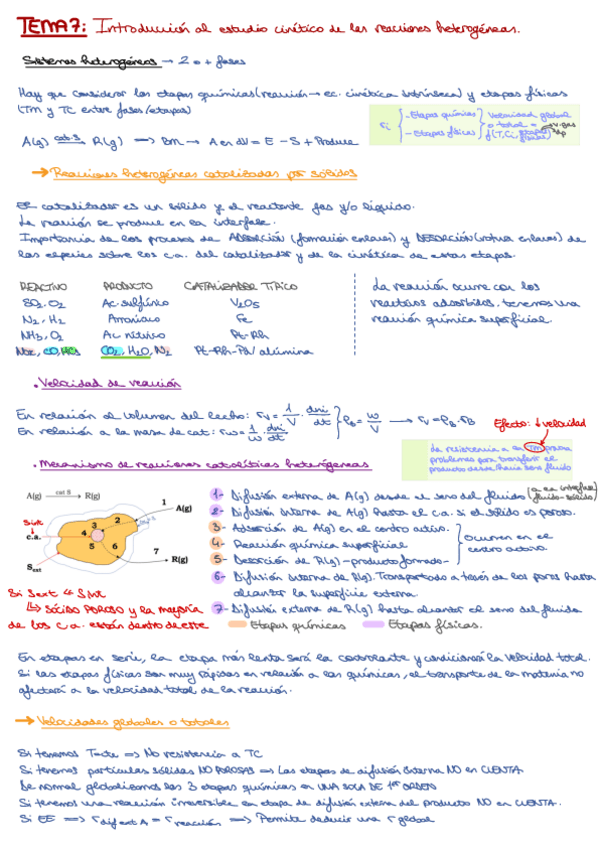 TEMA 7: Introducción al estudio cinético de las reacciones heterogéneas.
Sistemas heterogéneos → 2 o + fases
Hay que considerar las etapas químicas (reacción → ec. cinética intrínseca) y etapas físicas
(TM y TC entre fases/etapas)
ri { - Etapas químicas - Etapas físicas } Velocidad global o total =
A(g) cat S → R(g) ⟹ BM → A en dV = E - S + Produce
→ Reacciones heterogéneas catalizadas por sólidos
El catalizador es un sólido y el reactante gas y/o líquido.
La reacción se produce en la interfase.
Importancia de los procesos de ADSORCIÓN (formación enlaces) y DESORCIÓN (rotura enlaces) de
las especies sobre los c.a. del catalizador y de la cinética de estas etapas.
REACTIVO PRODUCTO CATALIZADOR TÍPICO
SO2, O2 Ac. sulfúrico V2O5
N2, H2 Amoniaco Fe
NH3, O2 Ac nítrico Pt-Rh
NOx, CO, HCs CO2, H2O, N2 Pt-Rh-Pd/alúmina
La reacción ocurre con los
reactivos adsorbidos. tenemos una
reacción química superficial.
• Velocidad de reacción
En relación al volumen del lecho: rv = 1/V · dni/dt
En relación a la masa de cat: rw = 1/w · dni/dt } ρB = w/V → rv = ρB · rB
Efecto: ↓ velocidad
La resistencia a la TM
problemas para transferir el
producto desde hacia seno fluido
• Mecanismo de reacciones catalíticas heterogéneas
A(g) cat S → R(g)
1
A(g)
Sint
c.a.
2
3
4
5
6
7
R(g)
Sext
1- Difusión externa de A(g) desde el seno del fluido (a la interfase fluido-sólido)
2- Difusión interna de A(g) hasta el c.a. si el sólido es poroso.
3- Adsorción de A(g) en el centro activo.
4- Reacción química superficial
5- Desorción de R(g) - producto formado -
} Ocurren en el centro activo
6- Difusión interna de R(g). Transportado a través de los poros hasta
alcanzar la superficie externa.
7- Difusión externa de R(g) hasta alcanzar el seno del fluido.
Etapas químicas Etapas físicas.
Si Sext << Sint
↳ SÓLIDO POROSO y la mayoría
de los c.a. están dentro de este
En etapas en serie, la etapa más lenta será la controlante y condicionará la velocidad total.
Si las etapas físicas son muy rápidas en relación a las químicas, el transporte de la materia no
afectará a la velocidad total de la reacción.
→ Velocidades globales o totales
Si tenemos T=cte ⟹ No resistencia a TC
Si tenemos partículas sólidas NO POROSAS ⟹ Las etapas de difusión interna NO en CUENTA
De normal globalizamos las 3 etapas químicas en UNA SOLA DE 1er ORDEN
Si tenemos una reacción irreversible la etapa de difusión externa del producto NO en CUENTA.
Si EE ⟹ rdif ext A = rreacción ⟹ Permite deducir una r global